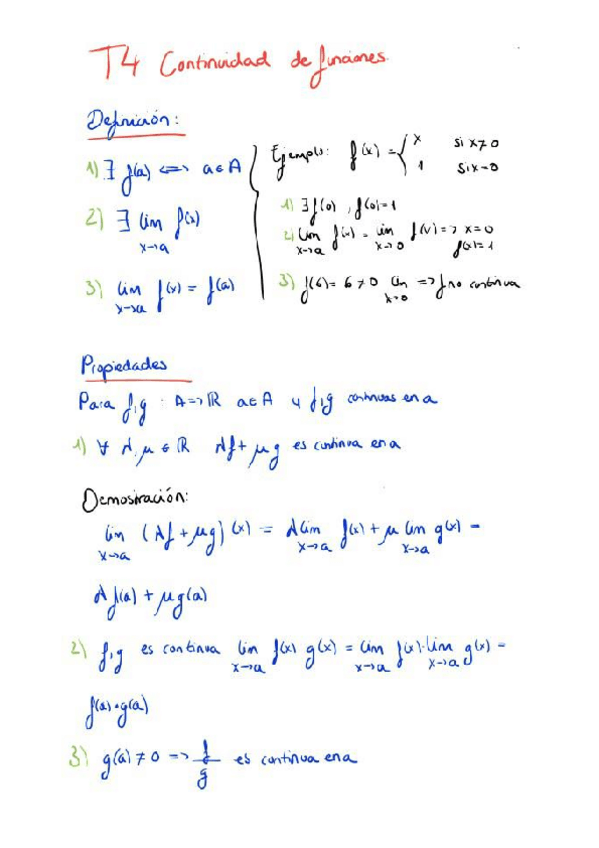 T4 Continuidad de funciones.
Definición:
1) ∃ f(a) <=> a∈A
2) ∃ lim f(x)
x→a
3) lim f(x) = f(a)
x→a
Ejemplo: f(x) = { x si x≠0
1 si x=0
1) ∃ f(0), f(0)=1
2) lim f(x) = lim f(x) => x=0
x→a x→0 f(x)=1
3) f(6)= 6 ≠ 0 lim => f no continua
x→0
Propiedades
Para f,g : A=>ℝ a∈A y f,g continuas en a
1) ∀ λ, μ ∈ ℝ λf + μg es continua en a
Demostración:
lim (λf + μg)(x) = λ lim f(x) + μ lim g(x) =
x→a x→a x→a
λf(a) + μg(a)
2) f,g es continua lim f(x) g(x) = lim f(x)·lim g(x) =
x→a x→a x→a
f(a)·g(a)
3) g(a) ≠ 0 => f/g es continua en a